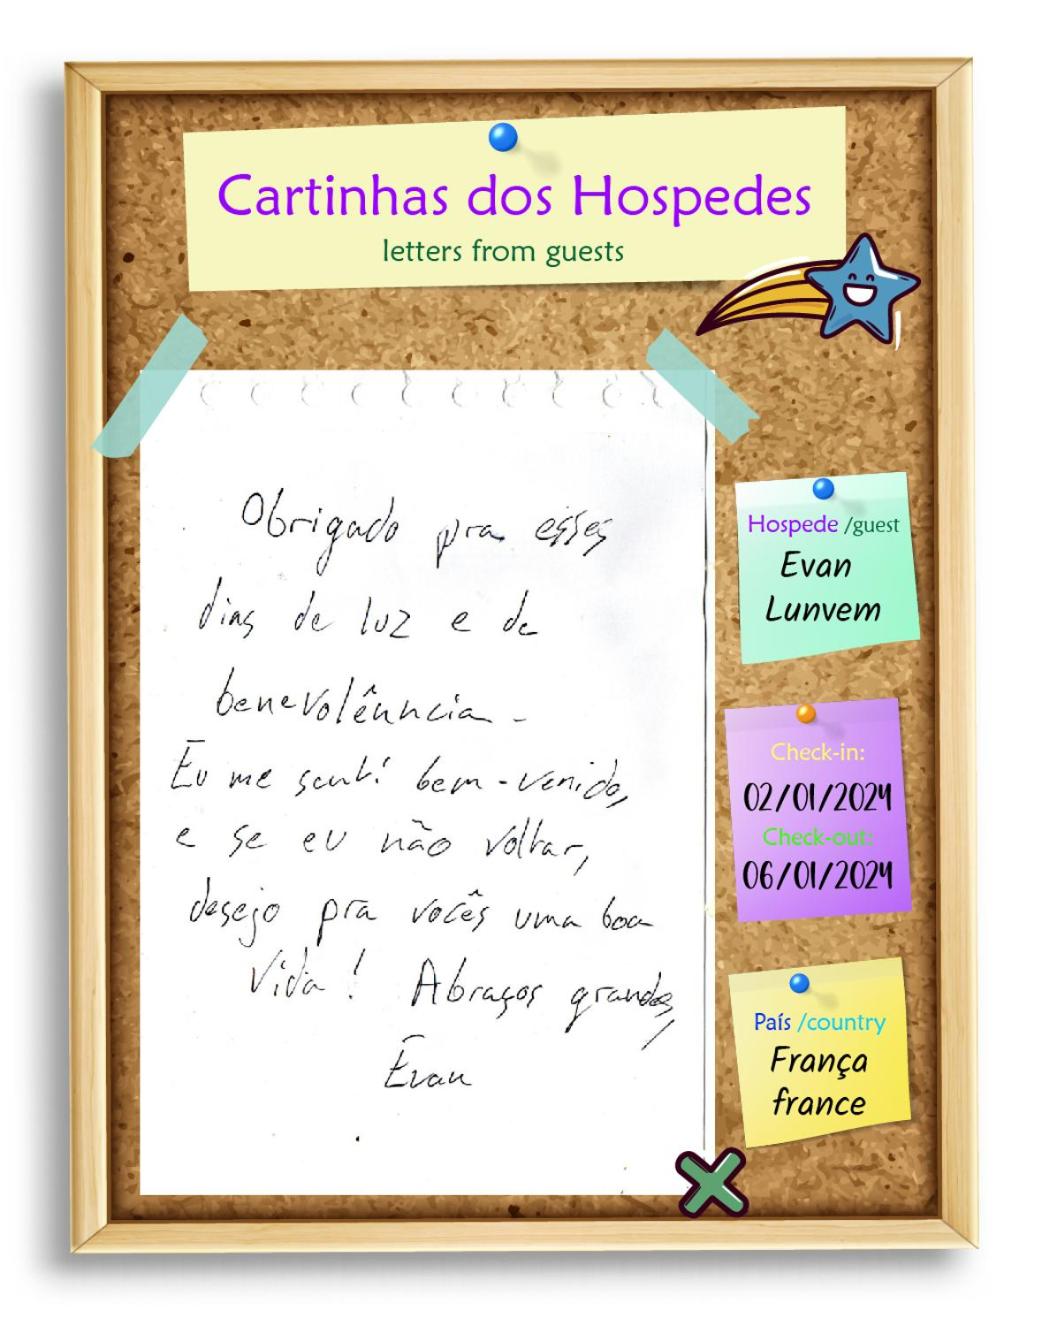 Cartinhas dos Hospedes
letters from guests
Obrigado pra esses
dias de luz e de
benevolênncia -
Eu me senti bem-venido,
e se eu não voltar,
desejo pra vocês uma boa
vida ! Abraços grandes,
Evan
Hospede /guest
Evan
Lunvem
Check-in:
02/01/2024
Check-out:
06/01/2024
País /country
França
france